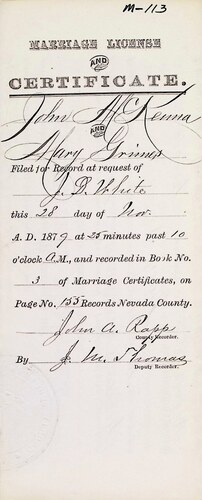 M-113
MARRIAGE LICENSE
AND
CERTIFICATE.
John McKenna
AND
Mary Grimes
Filed for Record at request of
J. D. White
this 28 day of Nov.
A. D. 1879 at 25 minutes past 10
o'clock A.M., and recorded in Book No.
3 of Marriage Certificates, on
Page No. 155 Records Nevada County.
John A. Rapp
County Recorder.
By J. M. Thomas
Deputy Recorder.